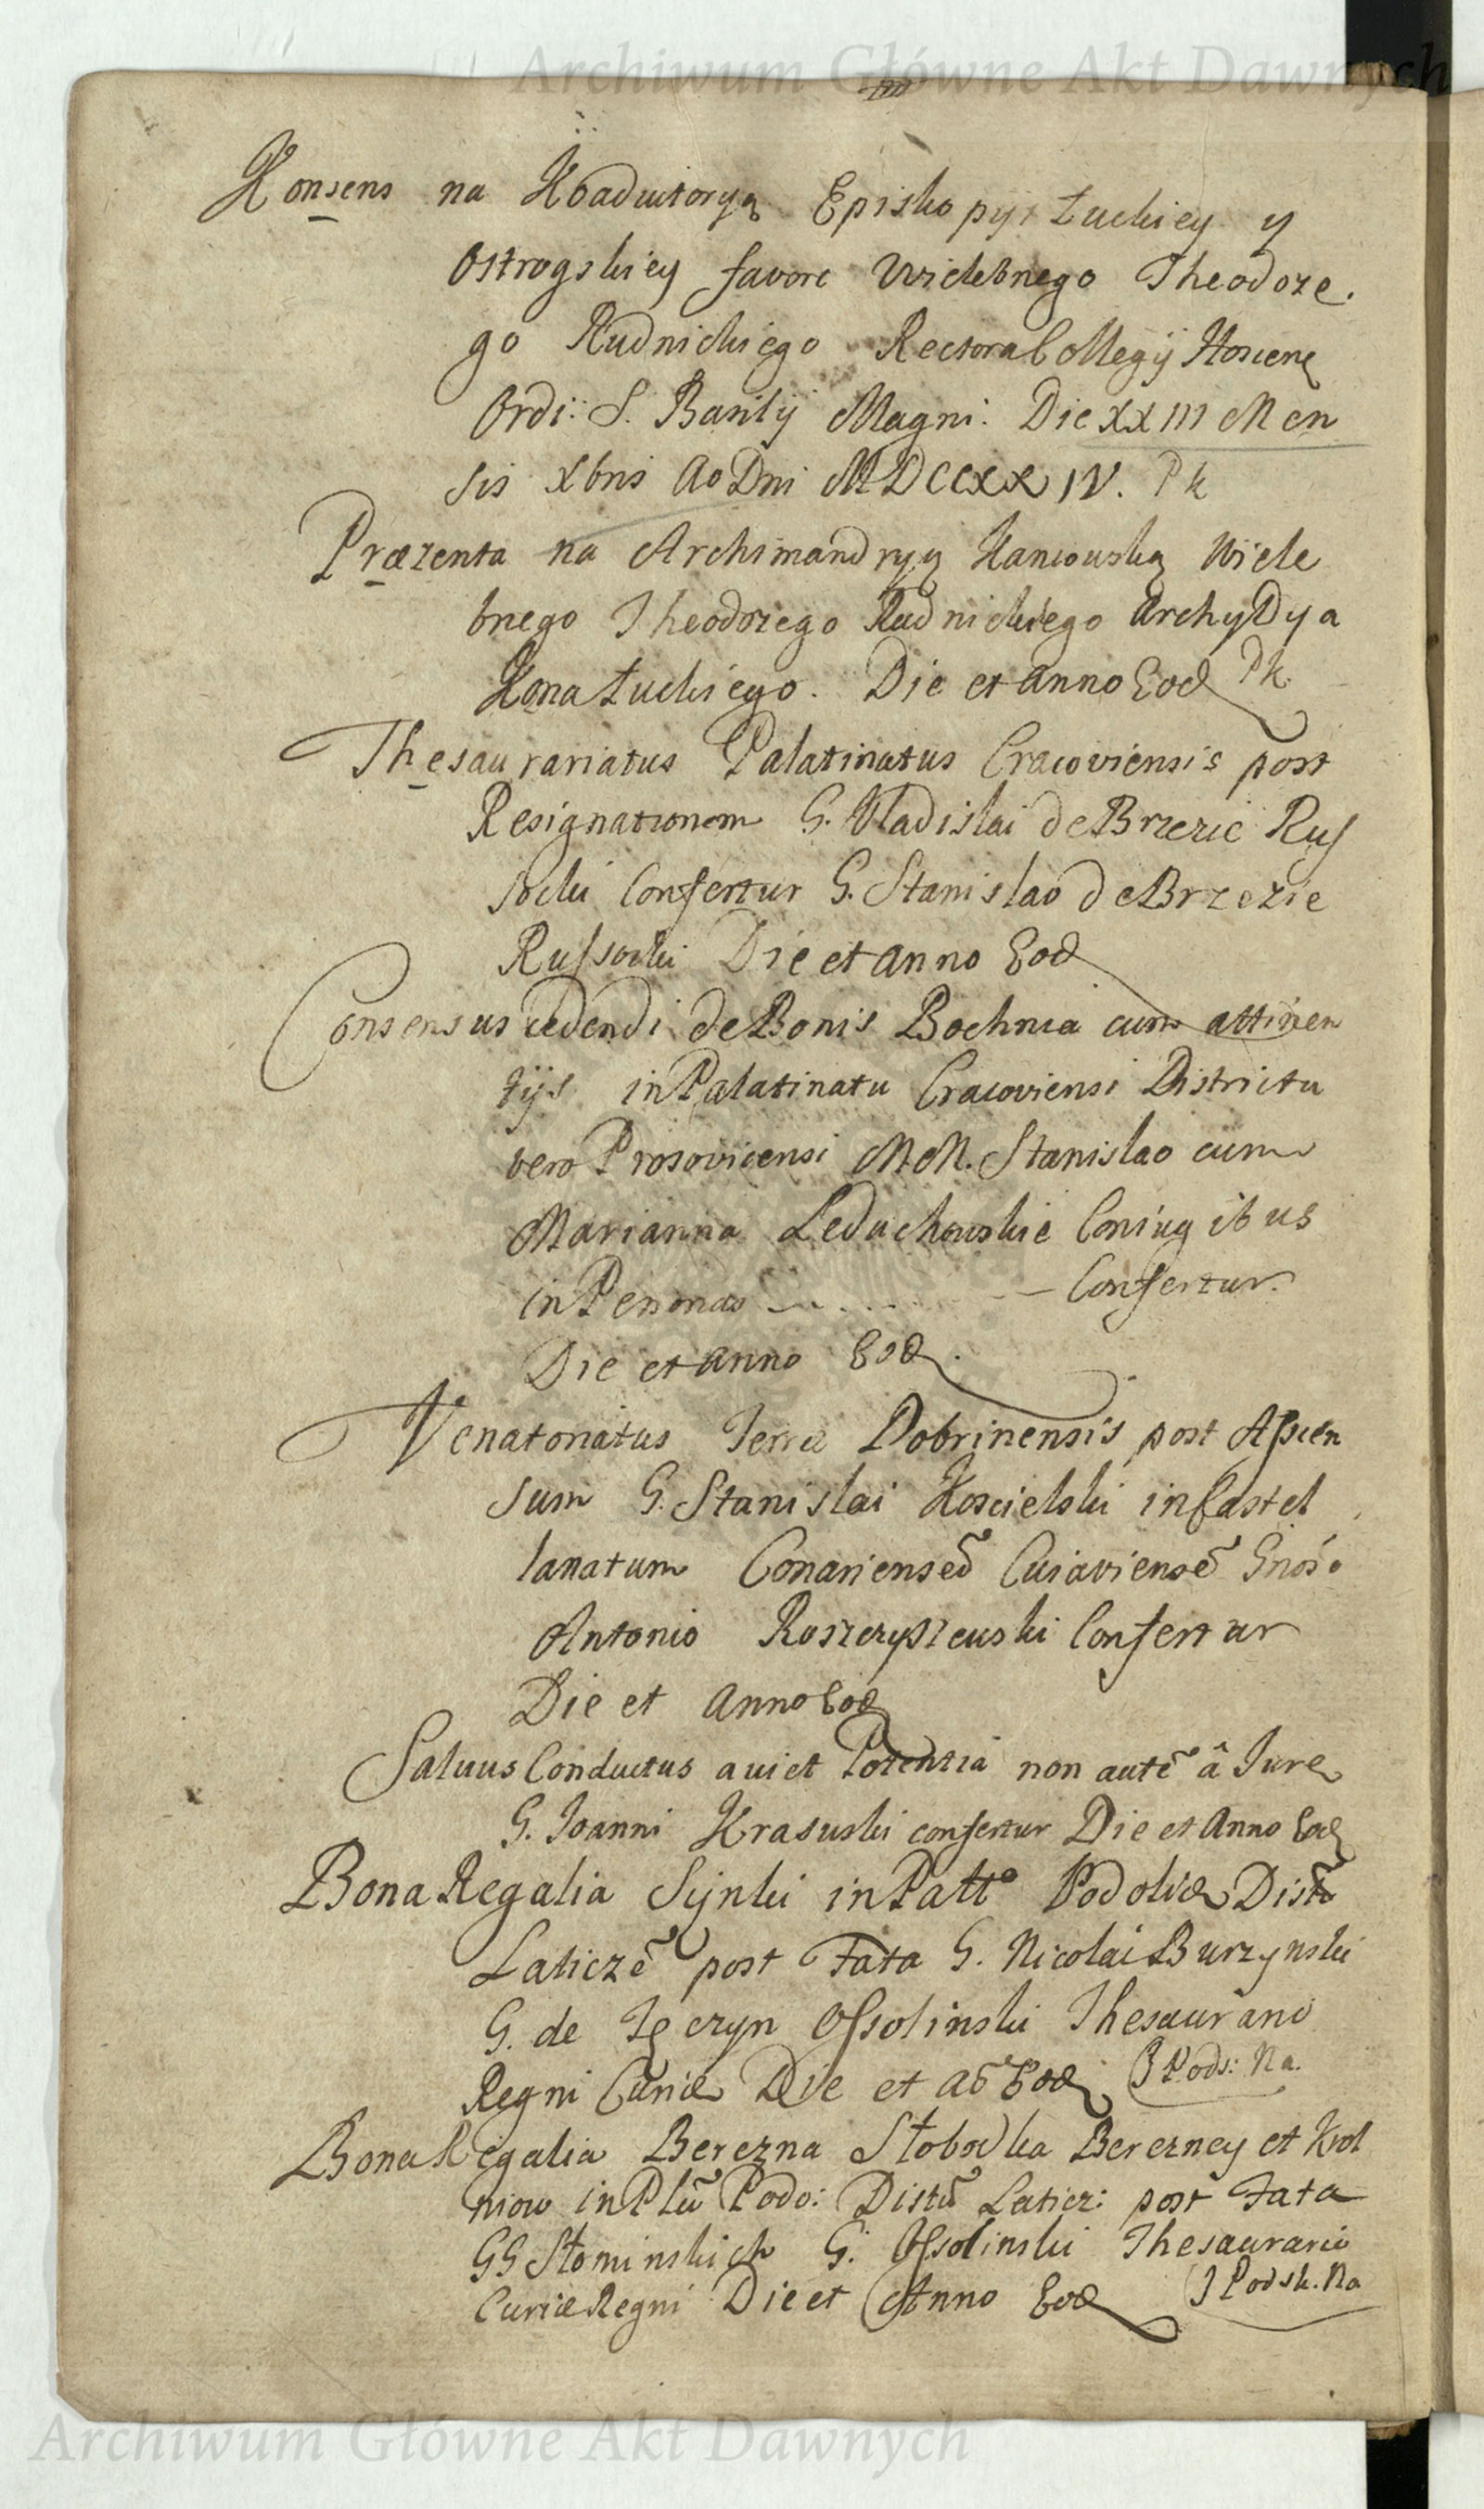 Archiwum Główne Akt Dawnych
Konsens na Koadiutoryą Episkopyi Łuckiey y
Ostrogskiey favore Wielebnego Theodoze.
go Rudnickiego Rectora Collegij
Ordi: S. Basilij Magni. Die XXIII Men
sis Xbris Ao Dni MDCCXXIV. Pk
Præzenta na Archimandryą Kaniowską Wiele
bnego Theodozego Rudnickiego ArchyDya
Kona Łuckiego. Die et anno Eod Pk
Thesaurariatus Palatinatus Cracoviensis post
Resignationem G. Vladislai de Brzezie Rus
socki Confertur G. Stanislao de Brzezie
Russocki Die et anno Eod
Consensus cedendi de Bonis Bochnia cum attinen
tijs in Palatinatu Cracoviensi Districtu
vero Prosovicensi M.M. Stanislao cum
Marianna Leduchowskie Coniugibus
in Personas - - - - Confertur.
Die et anno Eod.
Venatoriatus Terræ Dobrinensis post Ascen
sum G. Stanislai Koscielski in Castel
lanatum Conariensē Cuiaviensē Gnoso
Antonio Roszczyszewski Confertur
Die et Anno Eod
Salvus Conductus a vi et Potentia non autē â Jure
G. Joanni Krasuski confertur Die et Anno Eod
Bona Regalia Sijnki in Patto Podoliæ Distū
Laticzē post Fata G. Nicolai Burzynski
G. de Tęczyn Ossolinski Thesaurario
Regni Curiæ Die et aō Eod J Pods: Na.
Bona Regalia Berezna Słobodka Berezney et Kol
niow in Plū Podo: Distū Laticz: post Fata
GG Słominskich G. Ossolinski Thesaurario
Curiæ Regni Die et Anno Eod J Podsk. Na
Archiwum Główne Akt Dawnych